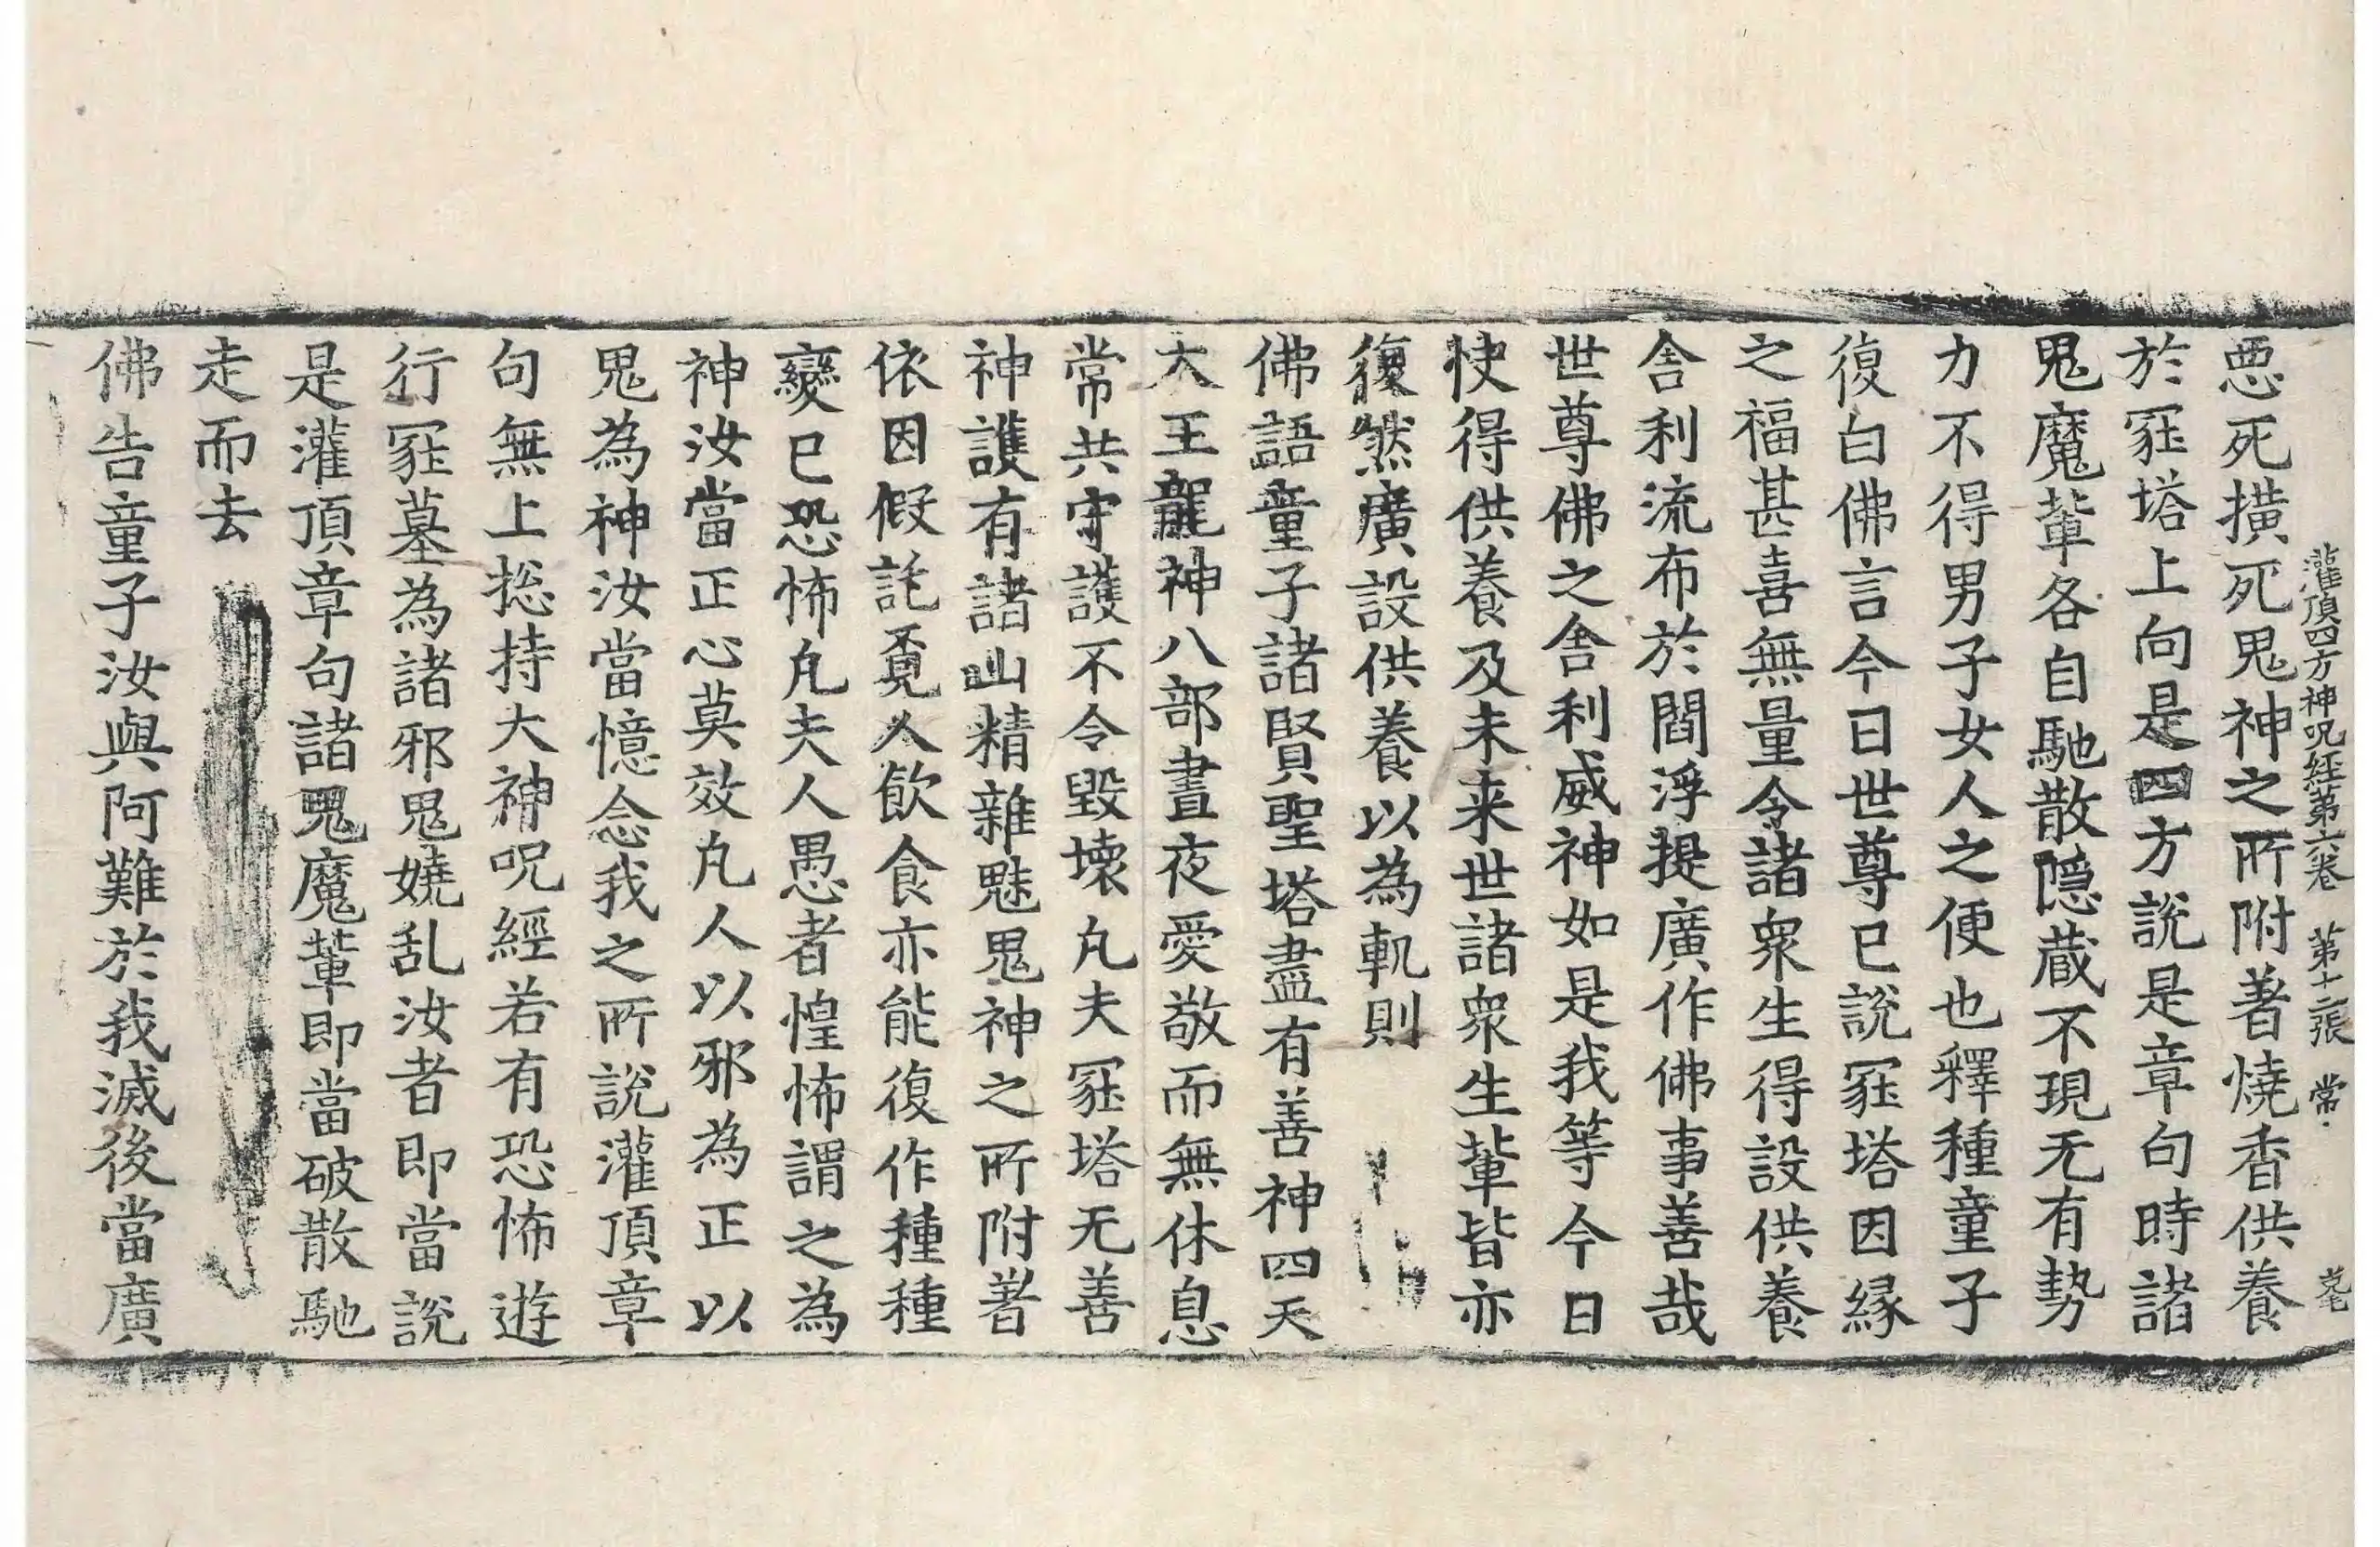 灌頂四方神呪経第六卷 第十二張 常
悪死撗死鬼神之所附著燒香供養
於冡塔上向是四方說是章句時諸
鬼魔軰各自馳散隱蔵不現无有勢
力不得男子女人之便也釋種童子
復白佛言今日世尊已說冡塔因縁
之福甚喜無量令諸衆生得設供養
舎利流布於閻浮提廣作佛事善哉
世尊佛之舎利威神如是我等今日
快得供養及未来世諸衆生軰皆亦
復然廣設供養以為軌則
佛語童子諸賢聖塔盡有善神四天
大王龍神八部晝夜愛敬而無休息
常共守護不令毀壊凡夫冡塔无善
神護有諸山精雜魅鬼神之所附著
依因假託覔人飲食亦能復作種種
變已恐怖凡夫人愚者惶怖謂之為
神汝當正心莫效凡人以邪為正以
鬼為神汝當憶念我之所說灌頂章
句無上捴持大神呪經若有恐怖遊
行冡墓為諸邪鬼嬈乱汝者即當說
是灌頂章句諸鬼魔軰即當破散馳
走而去
佛告童子汝與阿難於我滅後當廣